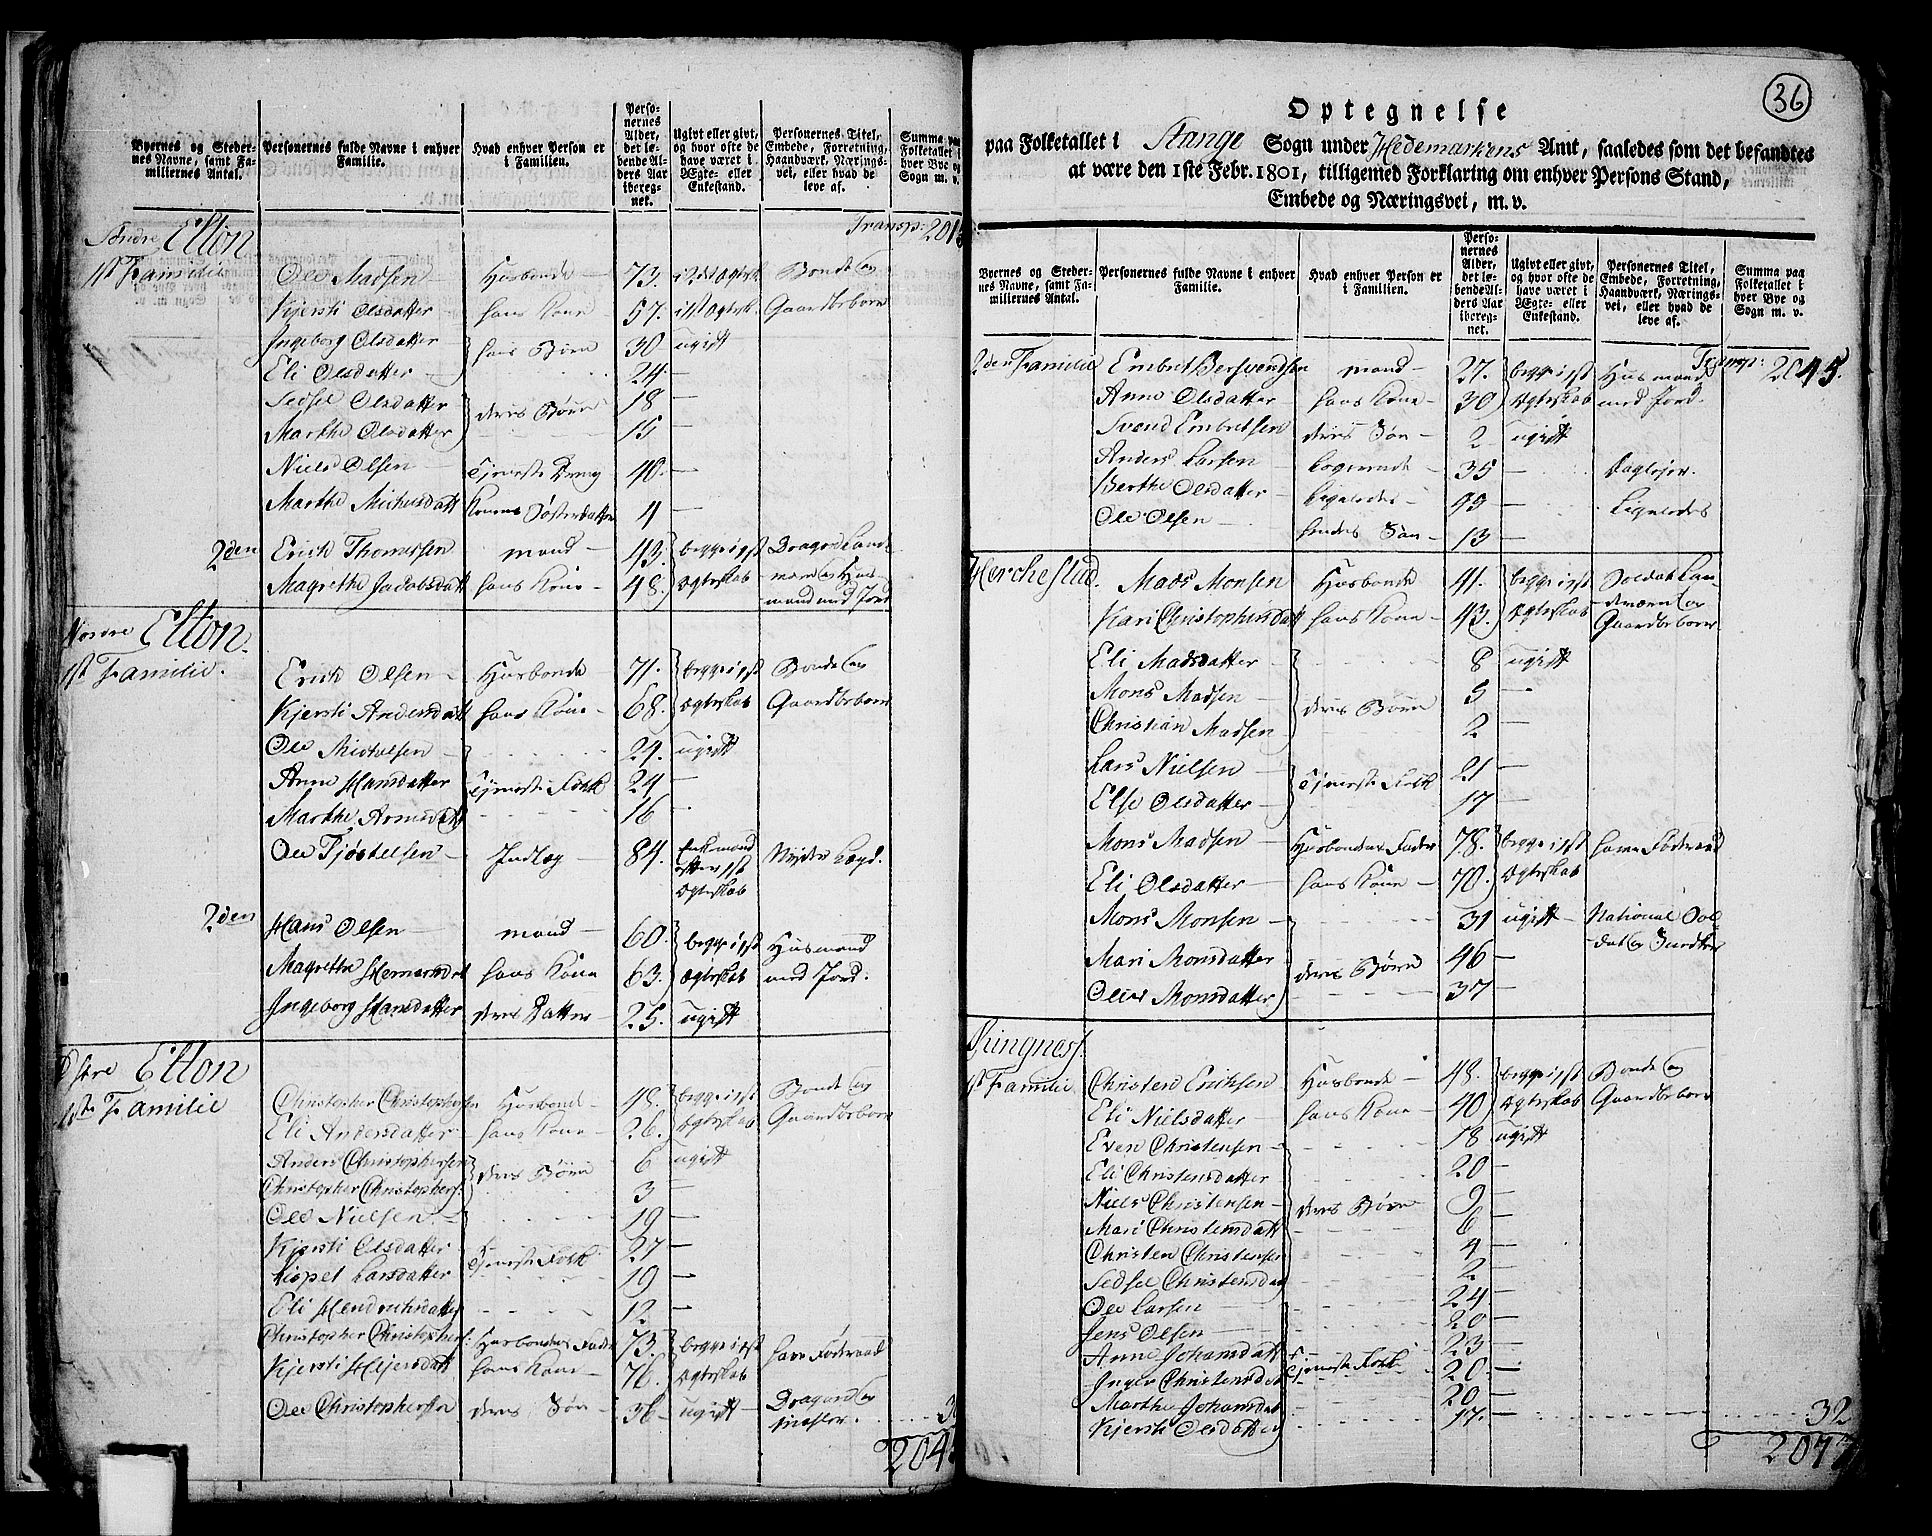 Byernes og Stedernes Navne, samt Familiernes Antal.
Personernes fulde Navne i enhver Familie.
Hvad enhver Person er i Familien.
Personernes Alder, det lebende Alders Aar iberegnet.
Ugivt eller givt, og hvor ofte de have været i Ægte- eller Enkestand.
Personernes Titel, Embede, Forretning, Haandværk, Næringsvei, eller hvad de leve af.
Summa paa Folketallet i hver Bye og Sogn m. v.
Transp: 201
Søndre Elton
1st Familie Ole Madsen Husbonde 73. Bonde og
Kjersti Olsdatter hans Kone 57. Gaardbeboer
Ingeborg Olsdatter hans Børn 30 ugivt
Eli Olsdatter 24 —
Sedsel Olsdatter deres Børn 18 —
Marthe Olsdatter 15 —
Niels Olsen Tjeneste Dreng 40. —
Marthe Michelsdatt Konens Søsterdatter 4 —
2den Erich Thomessen mand 43. begge i 1st
Magrethe Jacobsdatt hans Kone 48. Ægteskab mand med Jord
Nordre Elton.
1st Familie. Erich Olsen Husbonde 71. begge i 1st Bonde og
Kjersti Andersdatt hans Kone 68. Ægteskab Gaardbeboer
Ole 24. ugivt
Anne Hansdatter Tjeneste Folk 24 —
Marthe 16 —
Ole Tjøstelsen Indlæg 84. Enkemand efter 1st Ægteskab Nyder Lægd.
2den Hans Olsen mand 60. begge i 1st Husmand
Magrethe hans Kone 63. Ægteskab med Jord.
Ingeborg Hansdatter deres Datter 25. ugivt
Østre Elton
1ste Familie Christopher Christophersen Husbond 48. begge i 1st Bonde og
Eli Andersdatter hans Kone 26. Ægteskab Gaardbeboer
Anders Christophersen deres Børn 6 ugivt
Christopher Christophers. 3 —
Ole Nielsen 19 —
Kjersti Olsdatter Tjeneste Folk 27 —
Lispet Larsdatter 19 —
Eli Hendrichsdatter 12 —
Christopher Christophers: Husbondens Fader 73. begge i 1st have Føderaad
Kjersti hans Kone 76. Ægteskab
Ole Christophersen deres Søn 36 ugivt
204
36
Optegnelse
paa Folketallet i Stange Sogn under Hedemarkens Amt, saaledes som det befandtes
at være den 1ste Febr. 1801, tilligemed Forklaring om enhver Persons Stand,
Embede og Næringsvei, m. v.
Byernes og Stedernes Navne, samt Familiernes Antal.
Personernes fulde Navne i enhver Familie.
Hvad enhver Person er i Familien.
Personernes Alder, det lebende Alders Aar iberegnet.
Ugivt eller givt, og hvor ofte de have været i Ægte- eller Enkestand.
Personernes Titel, Embede, Forretning, Haandværk, Næringsvei, eller hvad de leve af.
Summa paa Folketallet i hver Bye og Sogn m. v.
Transp: 2045.
2den Familie Embret Bersvendsen mand 27. begge i 1st Husmand
Anne Olsdatter hans Kone 30 Ægteskab med Jord.
Svend Embretsen deres Søn 2 ugivt
Anders Larsen Logerende 35 — Daglejer.
Berthe Olsdatter Ligeledes — Ligeledes
Ole Olsen hendes Søn 13 —
Mads Monsen Husbonde 41. begge i 1st
Kari Christophersdatt hans Kone 43. Ægteskab Gaardbeboer
Eli Madsdatter 8 ugivt
Mons Madsen deres Børn 5 —
Christian Madsen 2 —
Lars Nielsen Tjeneste Folk 21 —
Else Olsdatter 17 —
Mons Madsen Husbondens Fader 78. begge i 1st have Føderaad
Eli Olsdatter hans Kone 70. Ægteskab
Mons Monsen 31 ugivt National Soldat
Mari Monsdatter deres Børn 46 —
Monsdatter 37 —
Ringness.
1st Familie Christen Eriksen Husbonde 48. begge i 1st Bonde og
Eli Nielsdatter hans Kone 40 Ægteskab Gaardbeboer
Even Christensen 18 ugivt
Eli Christensdatter 20 —
Niels Christensen deres Børn 9 —
Mari Christensdatt 6 —
Christen Christensen 4 —
Sedsel Christensda 2 —
Ole Larsen 24 —
Jens Olsen 20 —
Anne Johansdatt 23 —
Inger Christensdat Tjeneste Folk 20. —
Marthe Johansdat 20
Kjersti Olsdatter 17. — 32
2077